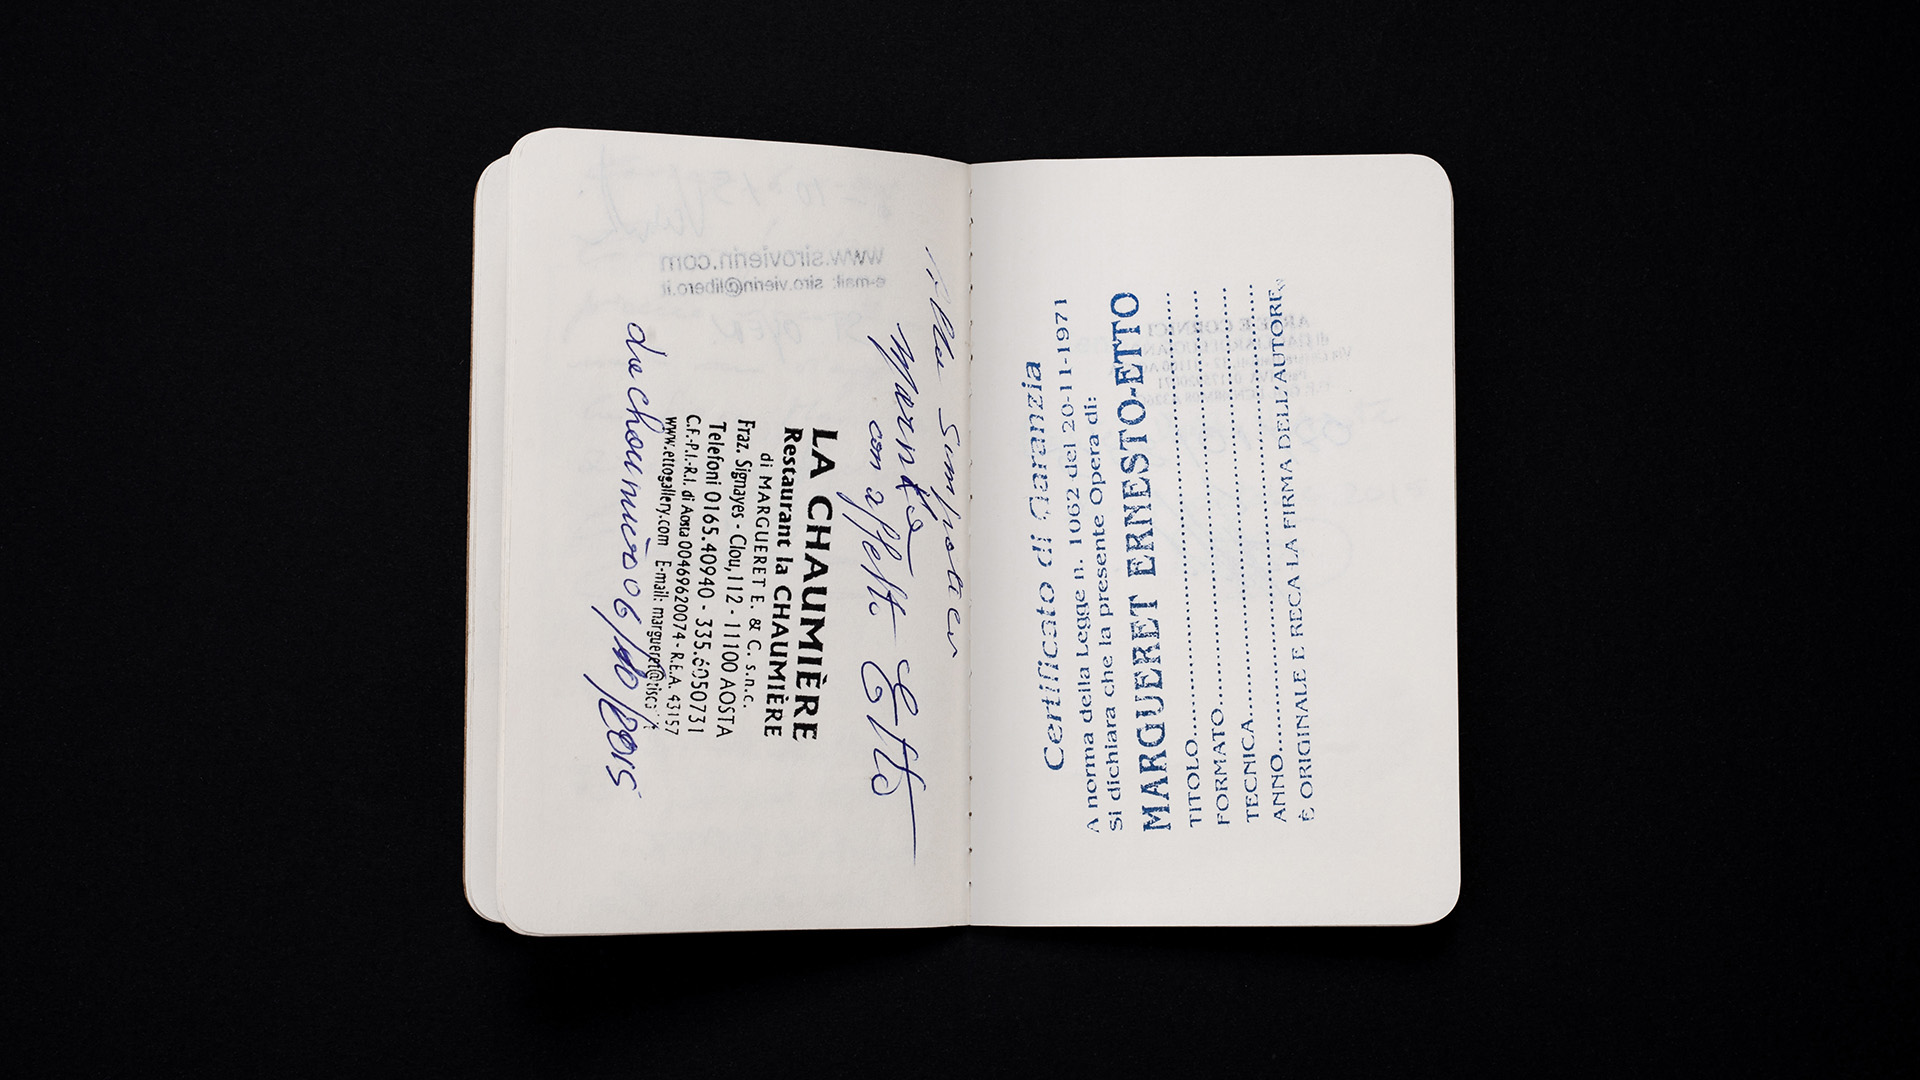 Alla Simpatica
con affetto Etto
LA CHAUMIÈRE
Restaurant la CHAUMIÈRE
di MARGUERET E. & C. s.n.c.
Fraz. Signayes - Clou, 112 - 11100 AOSTA
Telefoni 0165.40940 - 335.6050731
C.F.-P.I.-R.I. di Aosta 00469620074 - R.E.A. 43157
www.ettogallery.com E-mail: margueret@tisca
06/10/2015
Certificato di Garanzia
A norma della Legge n. 1062 del 20-11-1971
Si dichiara che la presente Opera di:
MARGUERET ERNESTO-ETTO
TITOLO
FORMATO
TECNICA
ANNO
È ORIGINALE E RECA LA FIRMA DELL'AUTORE
www.sirovierin.com
e-mail: siro.vierin@libero.it